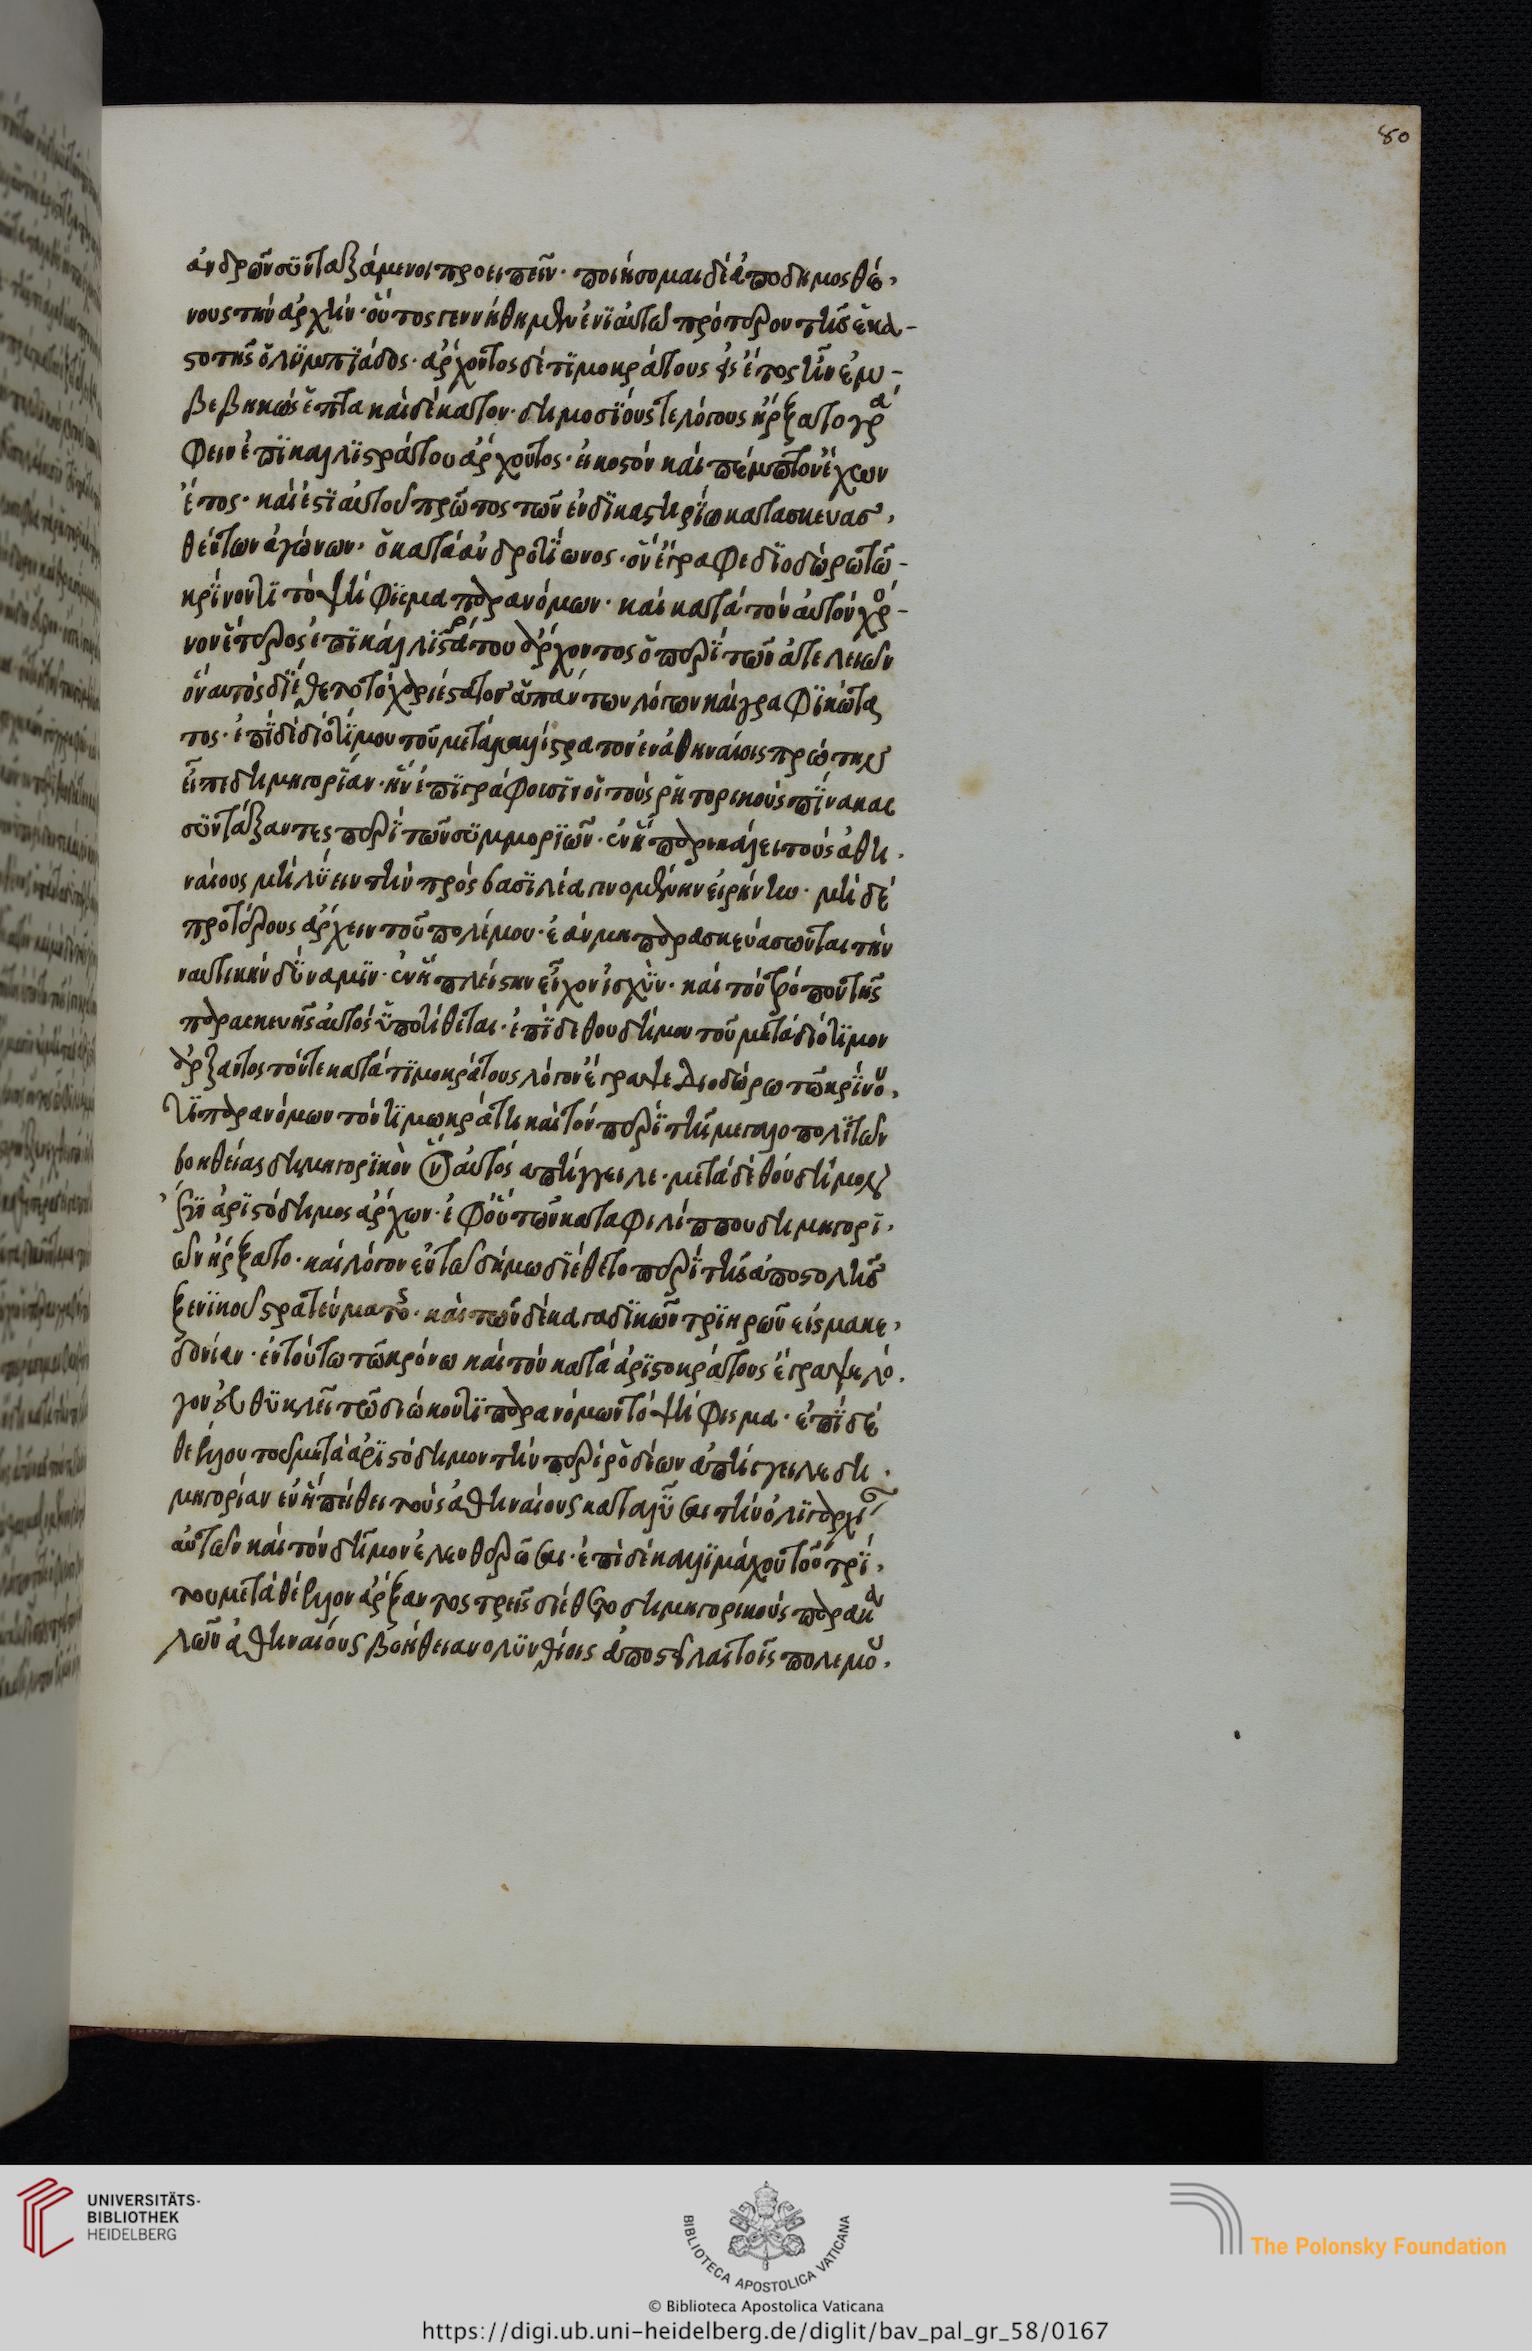 80
ἀνδρῶν συνταξάμενοι προειπεῖν· ποιήσομαι δὲ ἀπὸ δημοσθέ-
νους τὴν ἀρχήν· οὗτος ἐγεννήθη μὲν ἐνϊαυτῶ πρότερον τῆς ἑκα-
στοτῆς ὀλϋμπϊάδος· ἄρχοντος δὲ τϊμοκράτους εἰς ἔτος ἦν ἐμ-
βεβηκὼς ἑπτα καὶ δέκατον· δημοσϊους τε λόγους ἤρξατο γρά
φειν ἐπὶ καλλϊστράτου ἄρχοντος· εἰκοστὸν καὶ πέμπτον ἔχων
ἔτος· καὶ ἐστϊ αὐτοῦ πρῶτος τῶν ἐν δϊκαστηρϊω κατασκευασ-
θέντων ἀγώνων· ὁ κατὰ ἀνδροτϊωνος· ὃν ἔγραφε δϊοδώρω τῶ
κρϊνοντϊ τὸ ψήφϊσμα παρανόμων· καὶ κατὰ τὸν αὐτὸν χρό-
νον ἕτερος ἐπϊ καλλϊστράτου ἄρχοντος ὁ περϊ τῶν ἀτελειῶν
ὃν αυτὸς δϊέθετο τὸ χαριέστατον ἁπάντων λόγων καὶ γραφϊκώτα
τος· ἐπϊ δὲ διοτϊμου τοῦ μετὰ καλλίστρατον ἐν ἀθηναίοις πρώτην
εἶπε δημηγορϊαν· ἣν ἐπϊγράφουσϊν οἱ τοὺς ῥητορικοὺς πϊνακας
σϋντάξαντες περϊ τῶν σϋμμορϊῶν· ἐν ᾗ παρεκάλει τοὺς ἀθη-
ναίους μὴ λϋειν τὴν πρὸς βασϊλέα γενομένην εἰρήνην· μὴ δὲ
προτέρους ἄρχειν τοῦ πολέμου· ἐὰν μη παρασκευάσωνται τὴν
ναυτικὴν δϋναμϊν· ἐν ᾗ πλείστην εἶχον ἰσχϋν· καὶ τὸν τρόπον τῆς
παρασκευῆς αὐτὸς ὑποτίθεται· ἐπϊ δε θουδήμου τοῦ μετὰ διότϊμον
ἄρξαντος τόν τε κατὰ τϊμοκράτους λόγον ἔγραψε Διοδώρω τῶ κρϊνο-
ντϊ παρανόμων τὸν τϊμωκράτη καὶ τὸν περϊ τῆς μεγαλοπολϊτῶν
βοηθείας δημηγορϊκὸν ὃν αὐτὸς ἀπήγγειλε· μετὰ δὲ θούδημον
ἦν ἀρϊστόδημος ἄρχων· ἐφ' οὗ τῶν κατα φιλίππου δημηγορϊ-
ῶν ἤρξατο· καὶ λόγον ἐν τῶ δήμω διέθετο περϊ τῆς ἀποστολῆς
ξενϊκοῦ στρατεύματος· καὶ τῶν δέκα γαδϊκῶν τρϊηρῶν εἰς μακε-
δονίαν· ἐν τούτω τῶ χρόνω καὶ τὸν κατὰ ἀρϊστοκράτους ἔγραψε λό-
γον εὐθϋκλεῖ τῶ διώκοντϊ παρανόμων τὸ ψήφισμα· ἐπϊ δὲ
θεέλλου τοῦ μετὰ ἀρϊστόδημον τὴν περὶ ῥοδίων ἀπήγγειλε δη-
μηγορίαν ἐν ᾗ πείθει τοὺς ἀθηναίους καταλῦσαι τὴν ὀλϊγαρχί
αὐτῶν καὶ τὸν δῆμον ἐλευθερῶσαι· ἐπὶ δὲ καλλϊμάχου τοῦ τρϊ-
του μετὰ θέελλον ἄρξαντος τρεῖς διέθετο δημηγορικοὺς παρακα
λῶν ἀθηναίους βοήθειαν ὀλϋνθίοις ἀποστεῖλαι τοῖς πολεμο-
UNIVERSITÄTS-
BIBLIOTHEK
HEIDELBERG
BIBLIOTECA APOSTOLICA VATICANA
The Polonsky Foundation
© Biblioteca Apostolica Vaticana
https://digi.ub.uni-heidelberg.de/diglit/bav_pal_gr_58/0167